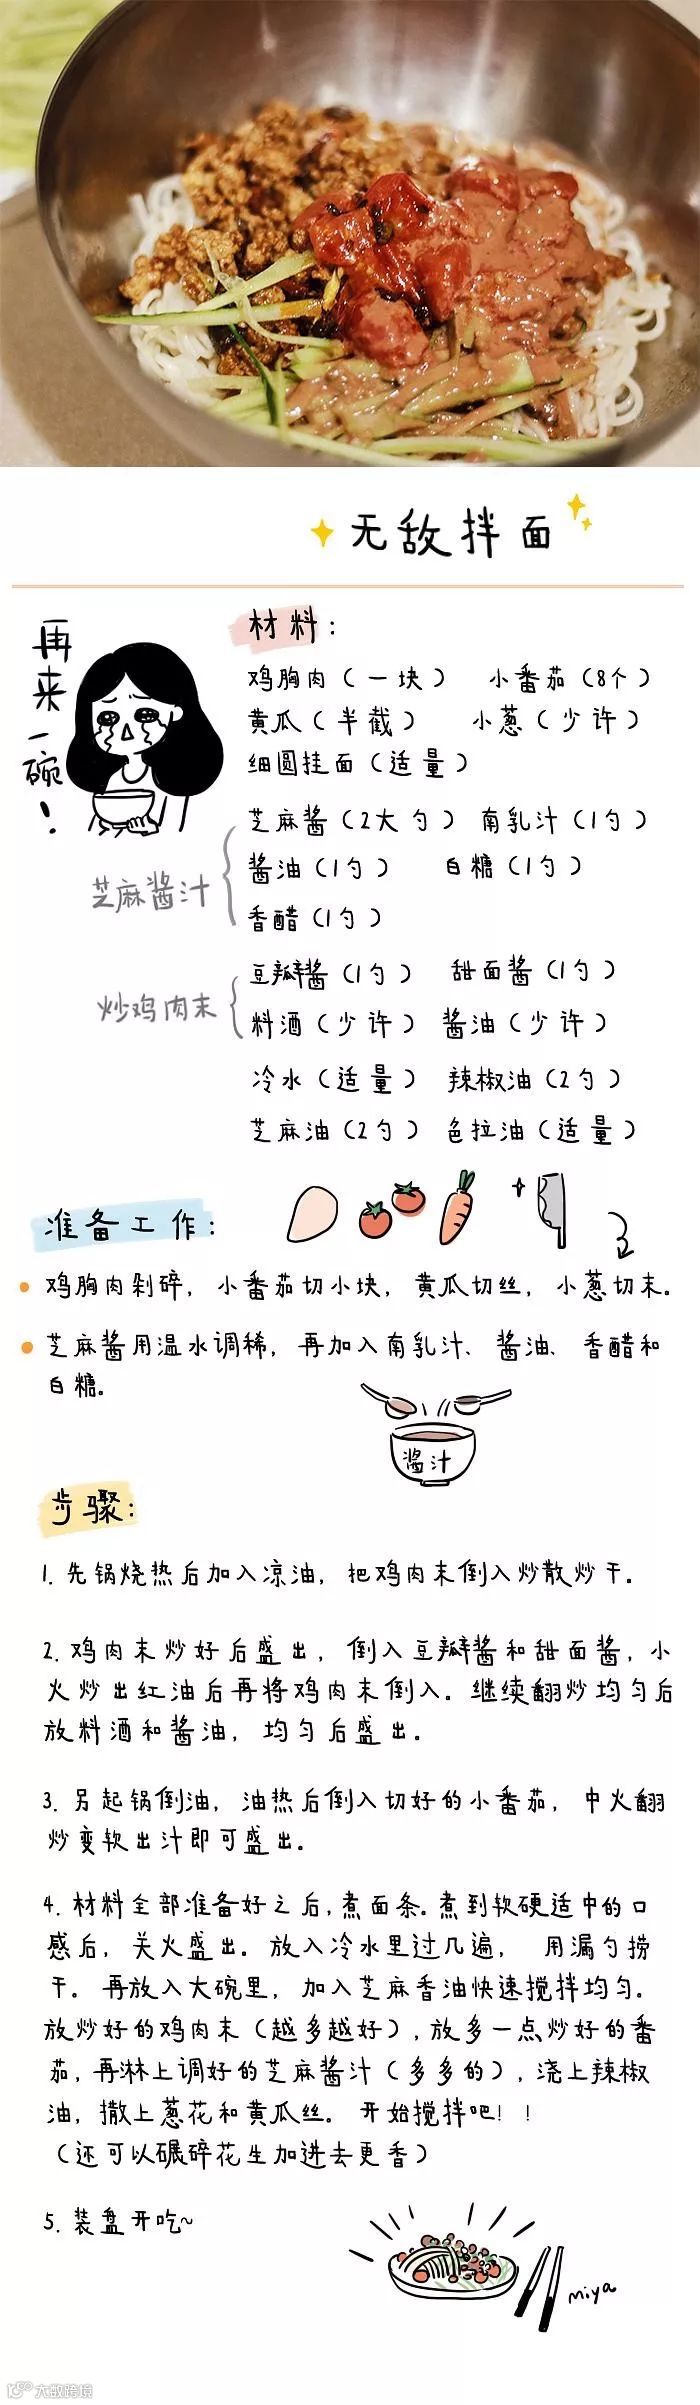 无敌拌面
再来一碗！
材料：
鸡胸肉（一块） 小番茄（8个）
黄瓜（半截） 小葱（少许）
细圆挂面（适量）
芝麻酱汁
芝麻酱（2大勺） 南乳汁（1勺）
酱油（1勺） 白糖（1勺）
香醋（1勺）
炒鸡肉末
豆瓣酱（1勺） 甜面酱（1勺）
料酒（少许） 酱油（少许）
冷水（适量） 辣椒油（2勺）
芝麻油（2勺） 色拉油（适量）
准备工作：
鸡胸肉剁碎，小番茄切小块，黄瓜切丝，小葱切末。
芝麻酱用温水调稀，再加入南乳汁、酱油、香醋和
白糖。
酱汁
步骤：
1. 先锅烧热后加入凉油，把鸡肉末倒入炒散炒干。
2. 鸡肉末炒好后盛出，倒入豆瓣酱和甜面酱，小
火炒出红油后再将鸡肉末倒入。继续翻炒均匀后
放料酒和酱油，均匀后盛出。
3. 另起锅倒油，油热后倒入切好的小番茄，中火翻
炒变软出汁即可盛出。
4. 材料全部准备好之后，煮面条。煮到软硬适中的口
感后，关火盛出。放入冷水里过几遍，用漏勺捞
干。再放入大碗里，加入芝麻香油快速搅拌均匀。
放炒好的鸡肉末（越多越好），放多一点炒好的番
茄，再淋上调好的芝麻酱汁（多多的），浇上辣椒
油，撒上葱花和黄瓜丝。开始搅拌吧！！
（还可以碾碎花生加进去更香）
5. 装盘开吃~
miya
大数跨境